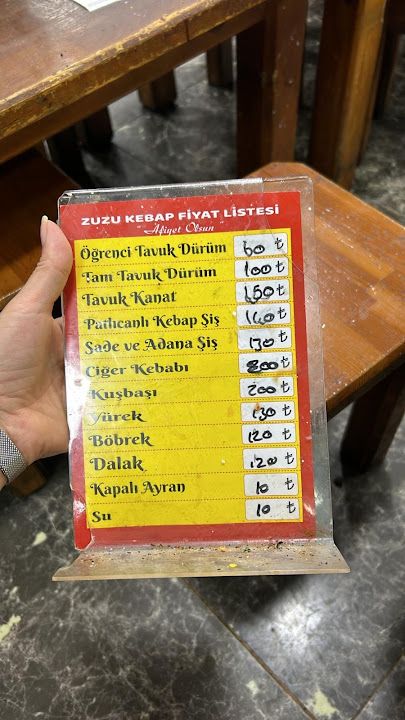 ZUZU KEBAP FİYAT LİSTESİ
"Afiyet Olsun"
Öğrenci Tavuk Dürüm 60 ₺
Tam Tavuk Dürüm 100 ₺
Tavuk Kanat 150 ₺
Patlıcanlı Kebap Şiş 140 ₺
Sade ve Adana Şiş 130 ₺
Ciğer Kebabı 200 ₺
Kuşbaşı 200 ₺
Yürek 130 ₺
Böbrek 120 ₺
Dalak 120 ₺
Kapalı Ayran 10 ₺
Su 10 ₺